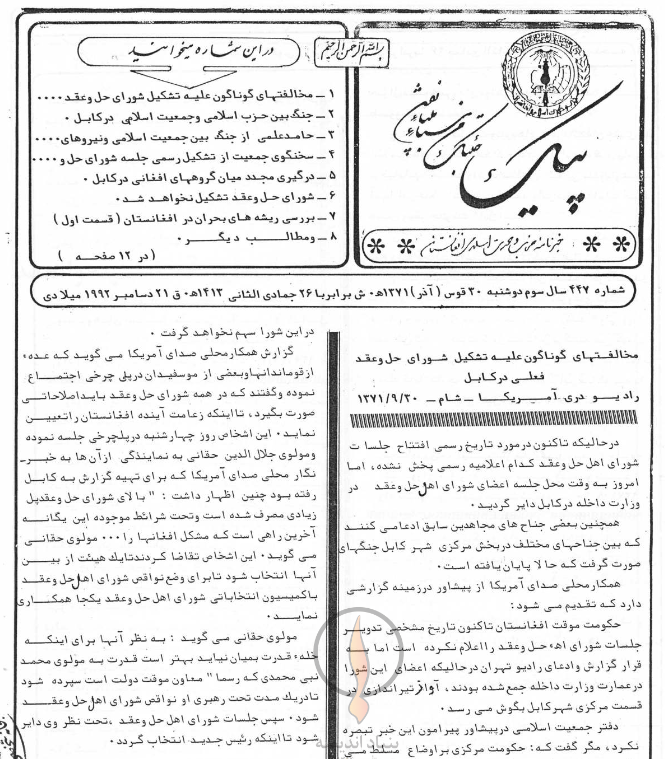 بسم الله الرحمن الرحیم
دراین شماره میخوانید
۱ ــ مخالفتهای گوناگون علیه تشکیل شورای حل وعقد ۰۰۰۰
۲ ــ جنگ بین حزب اسلامی وجمعیت اسلامی درکابل ۰
۳ ــ حامدعلمی از جنگ بین جمعیت اسلامی ونیروهای۰۰۰۰
۴ ــ سخنگوی جمعیت از تشکیل رسمی جلسه شورای حل و ۰۰۰۰
۵ ــ درگیری مجدد میان گروههای افغانی درکابل ۰
۶ ــ شورای حل وعقد تشکیل نخواهد شد۰
۷ ــ بررسی ریشه های بحران در افغانستان ( قسمت اول )
۸ ــ ومطالب دیگر ۰
( در ۱۲ صفحه )
پیک
خبرنامه حزب وحدت اسلامی افغانستان
شماره ۴۴۷ سال سوم دوشنبه ۳۰ قوس ( آذر ) ۱۳۷۱ه۰ ش برابربا ۲۶ جمادی الثانی ۱۴۱۳ه۰ ق ۲۱ دسامبر ۱۹۹۲ میلادی
مخالفتهای گوناگون علیه تشکیل شورای حل وعقد
فعلی درکابل
رادیو دری آمریکا ــ شام ــ ۱۳۷۱/۹/۳۰
درحالیکه تاکنون درمورد تاریخ رسمی افتتاح جلسات
شورای اهل حل وعقد کدام اعلامیه رسمی پخش نشده، اما
امروز به وقت محل جلسه اعضای شورای اهل حل وعقد در
وزارت داخله درکابل دایر گردید۰
همچنین بعضی جناح های مجاهدین سابق ادعامی کنند
که بین جناحهای مختلف دربخش مرکزی شهر کابل جنگهای
صورت گرفت که حالا پایان یافته است۰
همکارمحلی صدای آمریکا از پیشاور درزمینه گزارشی
دارد که تقدیم می شود:
حکومت موقت افغانستان تاکنون تاریخ مشخصی تدویر
جلسات شورای اهل حل وعقد رااعلام نکرده است اما به
قرار گزارش وادعای رادیو تهران درحالیکه اعضای این شورا
درعمارت وزارت داخله جمع شده بودند، آواز تیراندازی در
قسمت مرکزی شهرکابل بگوش می رسد۰
دفتر جمعیت اسلامی درپیشاور پیرامون این خبر تبصره
نکرد، مگر گفت که: حکومت مرکزی براوضاع مسلط می
دراین شورا سهم نخواهد گرفت ۰
گزارش همکارمحلی صدای آمریکا می گوید که عدهء
ازقوماندانهاوبعضی از موسفیدان درپلی چرخی اجتماع
نموده وگفتند که در همه شورای حل وعقد بایداصلاحاتی
صورت بگیرد، تااینکه زعامت آینده افغانستان راتعیین
نماید۰ این اشخاص روز چهارشنبه درپلچرخی جلسه نموده
ومولوی جلال الدین حقانی به نمایندگی ازآن ها به خبر ــ
نگار محلی صدای آمریکا که برای تهیه گزارش به کابل
رفته بود چنین اظهار داشت : " بالای شورای حل وعقدپل
زیادی مصرف شده است وتحت شرائط موجوده این یگانه
آخرین راهی است که مشکل افغانها را۰۰۰ مولوی حقانی
می گوید۰ این اشخاص تقاضا کردندتایك هیئت از بین
آنها انتخاب شود تابرای وضع نواقص شورای اهل حل وعقد
باکمیسون انتخاباتی شورای اهل حل وعقد یکجا همکاری
نماید۰
مولوی حقانی می گوید : به نظر آنها برای اینکه
خلاء قدرت بمیان نیاید بهتر است قدرت به مولوی محمد
نبی محمدی که رسما " معاون موقت دولت است سپرده شود
تادریك مدت تحت رهبری او نواقص شورای اهل حل وعقد
شود۰ سپس جلسات شورای اهل حل وعقد ،تحت نظر وی دایر
شود تااینکه رئیس جدید انتخاب گردد۰
بنیاد اندیشه